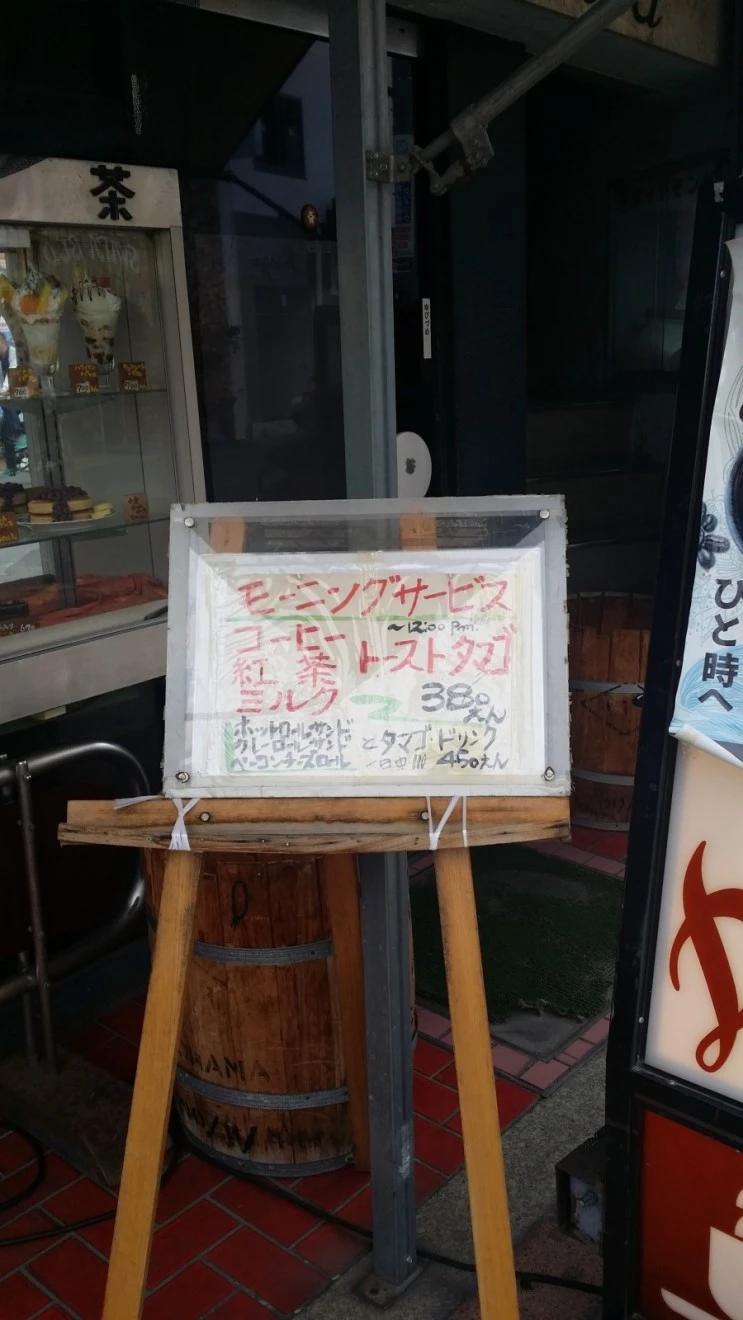 茶
モーニングサービス
〜12:00 P.m.
コーヒー
紅茶
ミルク
トーストタマゴ
380
えん
ホットロールサンド
カレーロールサンド
ベーコンチーズロール
とタマゴ・ドリンク
450えん
ひと時へ
D